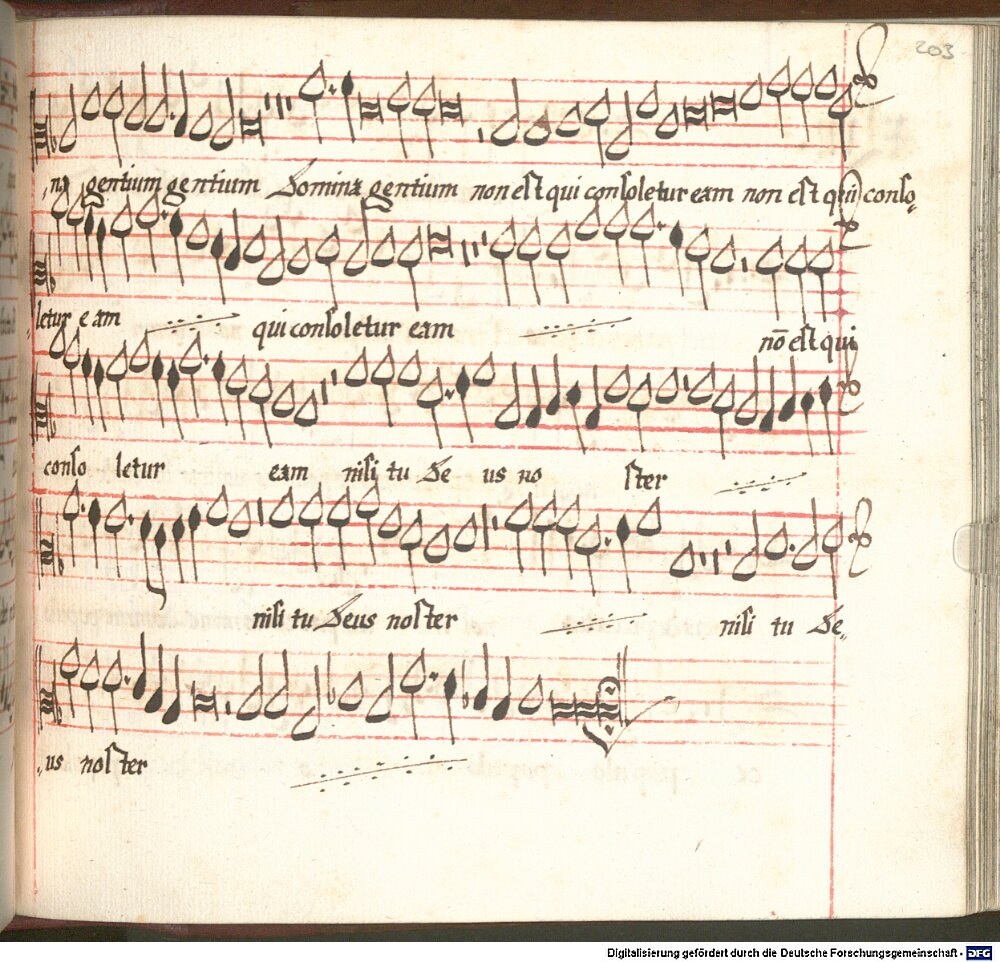 203
na gentium gentium Domina gentium non est qui consoletur eam non est qui conso
letur eam qui consoletur eam nō est qui
conso letur eam nisi tu De us no ster
nisi tu Deus noster nisi tu De
us noster
Digitalisierung gefördert durch die Deutsche Forschungsgemeinschaft - DFG